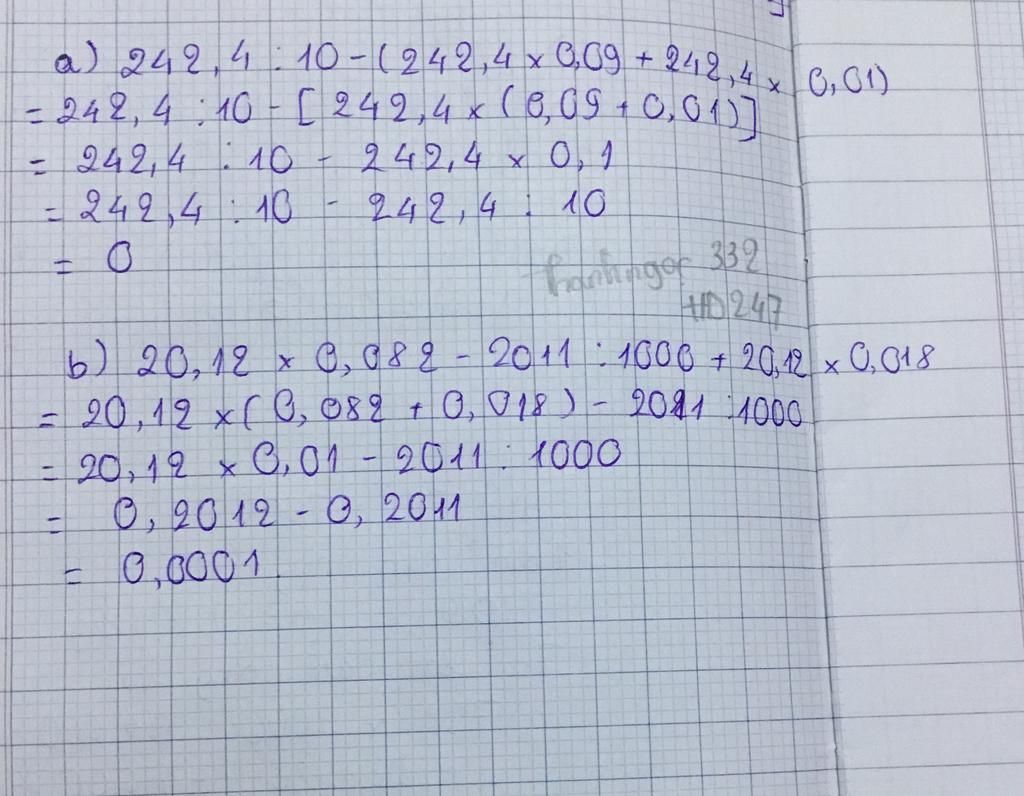 a) 242,4 : 10 - (242,4 x 0,09 + 242,4 x 0,01)
= 242,4 : 10 - [242,4 x (0,09 + 0,01)]
= 242,4 : 10 - 242,4 x 0,1
= 242,4 : 10 - 242,4 : 10
= 0
332
HD247
b) 20,12 x 0,082 - 2011 : 1000 + 20,12 x 0,018
= 20,12 x (0,082 + 0,018) - 2011 : 1000
= 20,12 x 0,01 - 2011 : 1000
= 0,2012 - 0,2011
= 0,0001